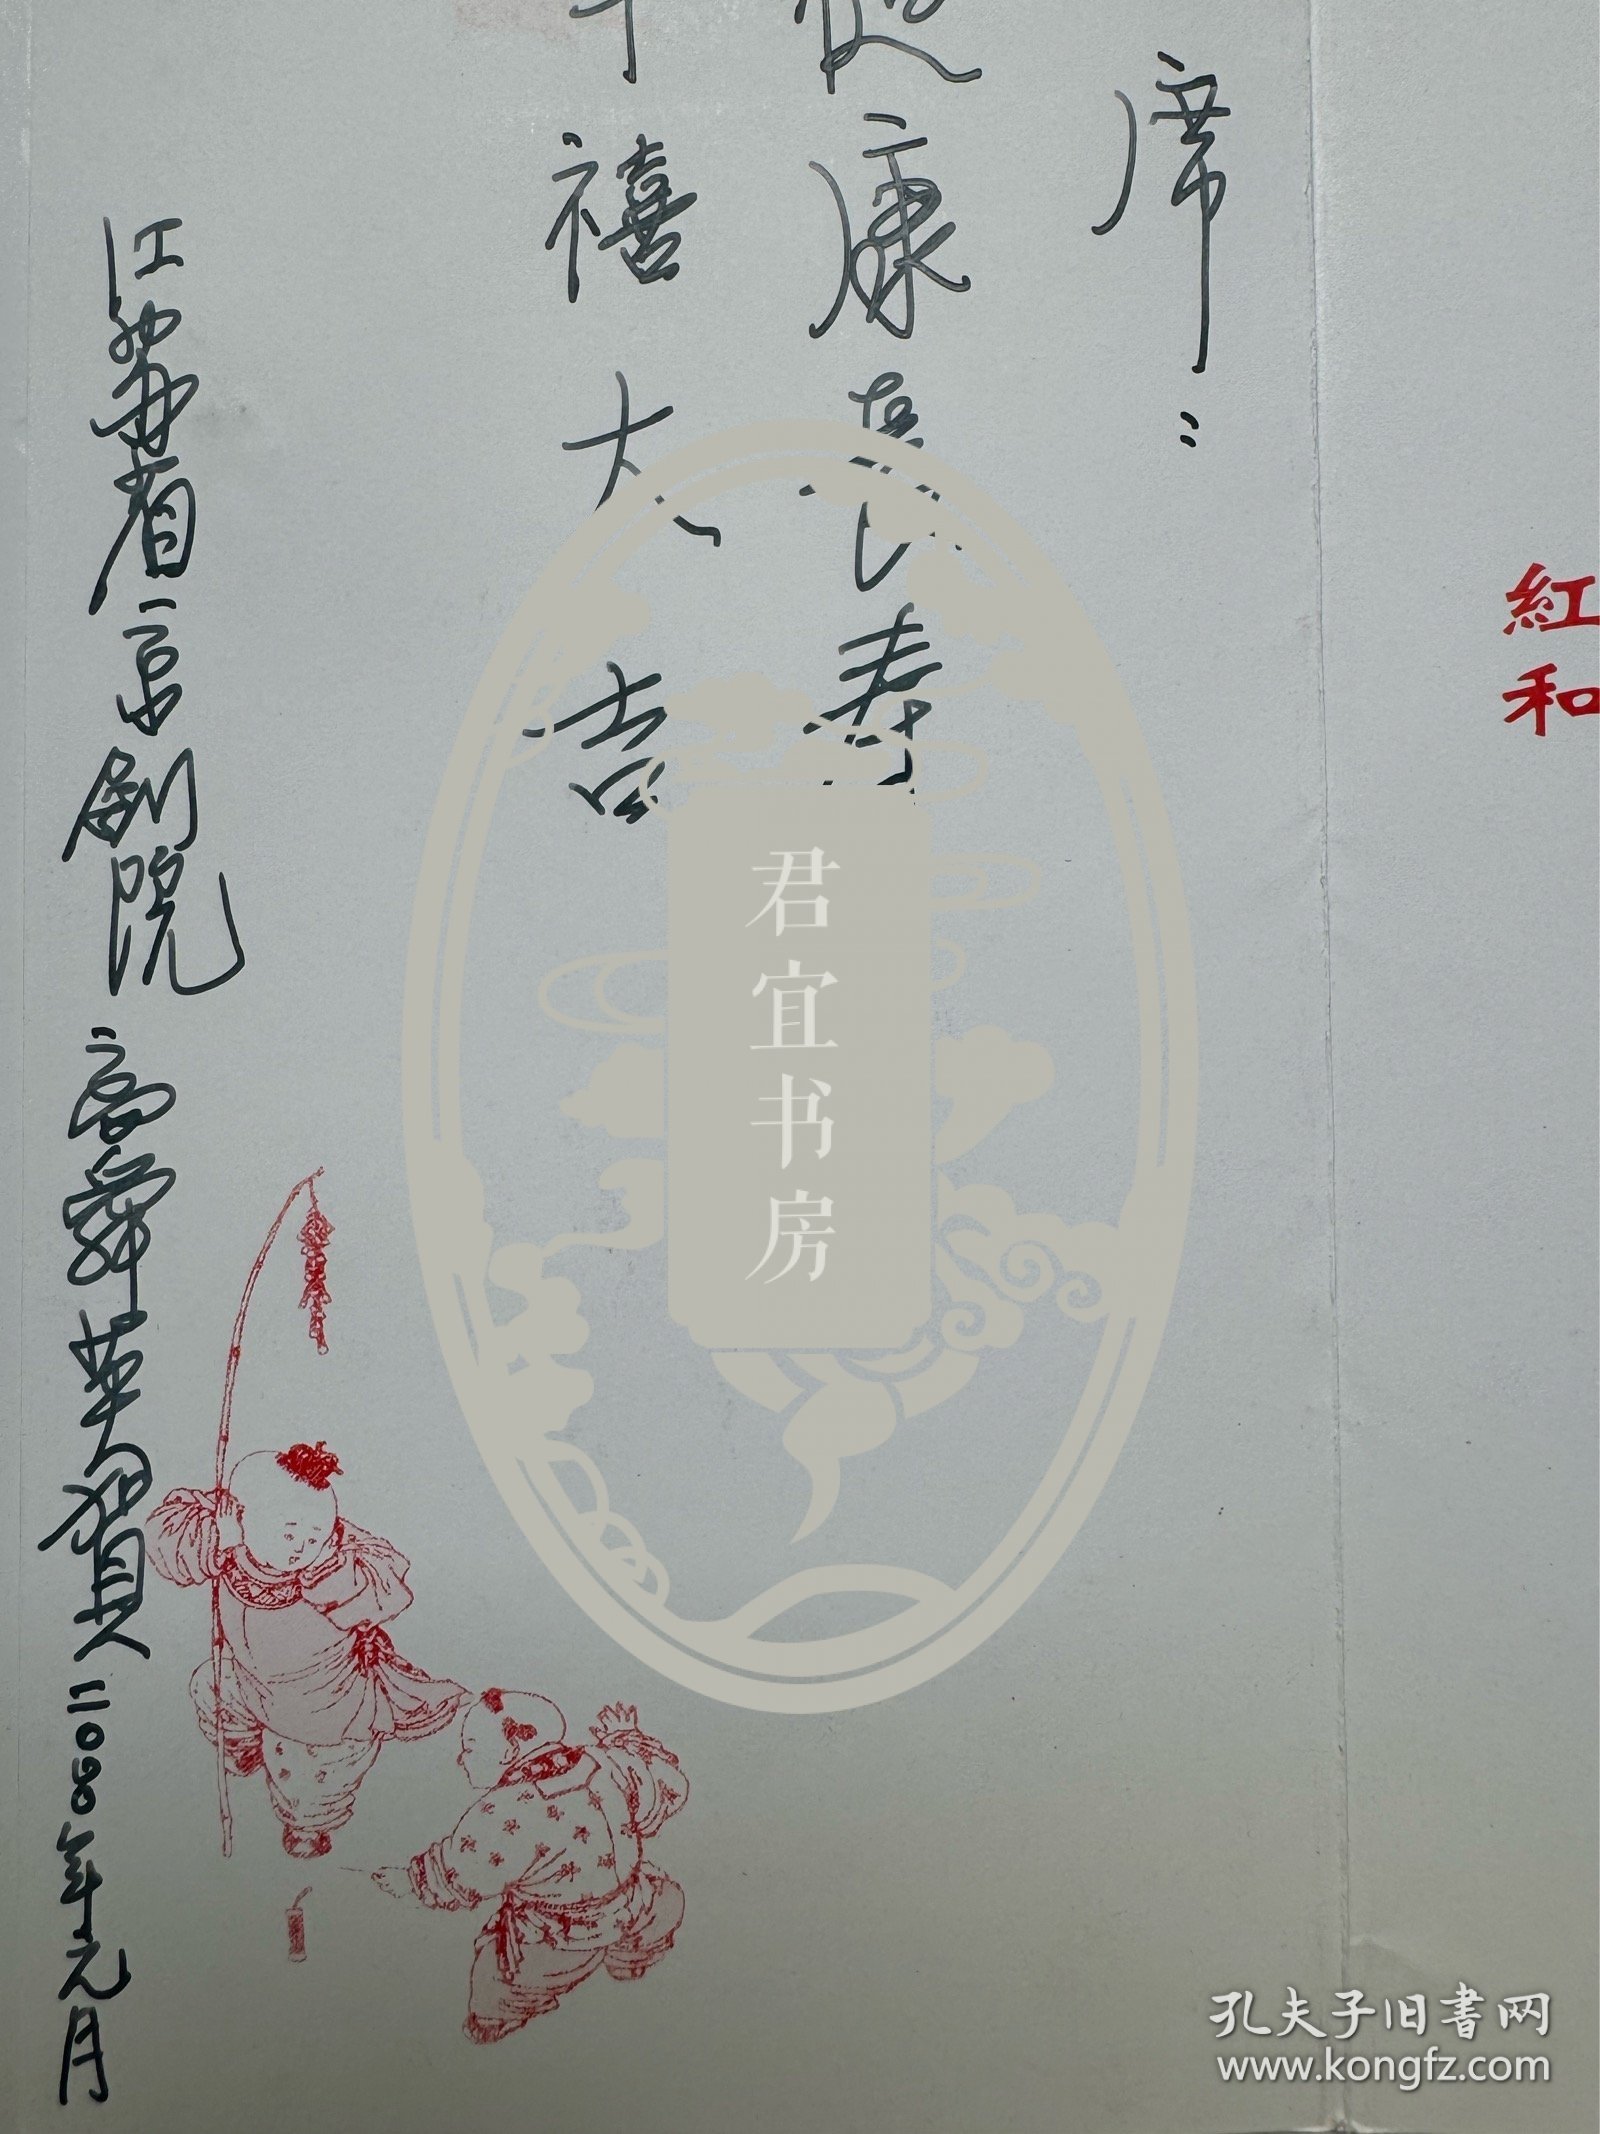 紅
和
席：
康長寿
禧大吉
江苏省京劇院
高舜英賀
二〇〇八年元月
君宜书房
孔夫子旧書网
www.kongfz.com